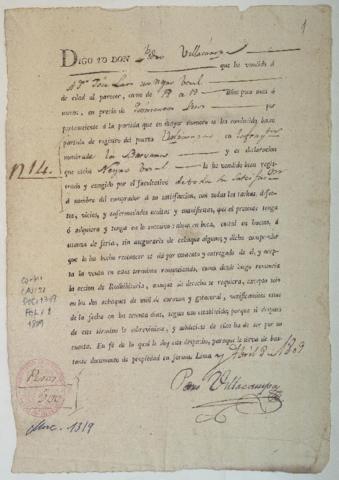 1
DIGO YO DON Pedro Villacampa
que he vendido á
Dn José Lara un Negro Bozal
de edad al parecer, como de 18 a 19 años poco mas ó
menos, en precio de pesos por
perteneciente á la partida que en mayor número se ha conducido baxo
partida de registro del puerto Valparaiso en la fragata
nombrada la y es declaracion
que dicho Negro Bozal lo he vendido bien regis-
trado y escogido por el facultativo
á nombre del comprador á su satisfaccion, con todas las tachas, defec-
tos, vicios, y enfermedades ocultas y manifiestas, que al presente tenga
ó adquiera y tenga en lo succesivo, alma en boca, costal en huesos, á
usanza de feria, sin asegurarlo de achaque alguno; y dicho comprador
que lo ha hecho reconocer se dá por contento y entregado de él, y acep-
ta la venta en estos terminos renunciando, como desde luego renuncia
la accion de Redhibitoria, aunque de derecho se requiera, excepto solo
en los dos achaques de mal de corazon y gotacoral, verificandose estos
de la fecha en los treinta dias, segun uso establecido; porque si despues
de este término le sobreviniese, y adoleciese de ellos ha de ser por su
cuenta. En fé de lo qual le doy este despacho, para que le sirva de bas-
tante documento de propiedad en forma: Lima y Abril 8 de 1809
Pedro Villacampa
N 14.
CAJ 121
DOC 1319
FOL 1
1809
Pesos
500
1319